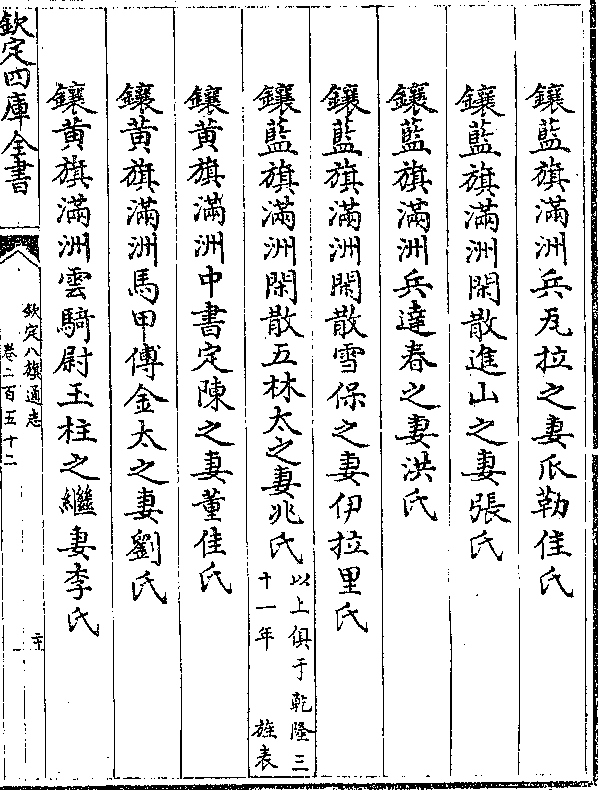 鑲藍旗滿洲兵瓦拉之妻瓜勒佳氏
鑲藍旗滿洲閑散進山之妻張氏
鑲藍旗滿洲兵達春之妻洪氏
鑲藍旗滿洲閑散雪保之妻伊拉里氏
鑲藍旗滿洲閑散五林太之妻兆氏以上俱于乾隆三
十一年 旌表
鑲黃旗滿洲中書定陳之妻董佳氏
鑲黃旗滿洲馬甲傅金太之妻劉氏
鑲黃旗滿洲雲騎尉玉柱之繼妻李氏
欽定四庫全書
欽定八旗通志
卷二百五十二